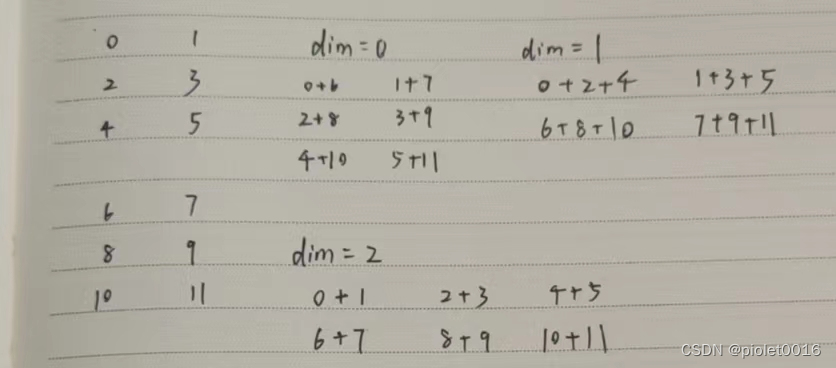 0 1 dim=0 dim=1
2 3 0+6 1+7 0+2+4 1+3+5
4 5 2+8 3+9 6+8+10 7+9+11
4+10 5+11
6 7
8 9 dim=2
10 11 0+1 2+3 4+5
6+7 8+9 10+11
CSDN @piolet0016